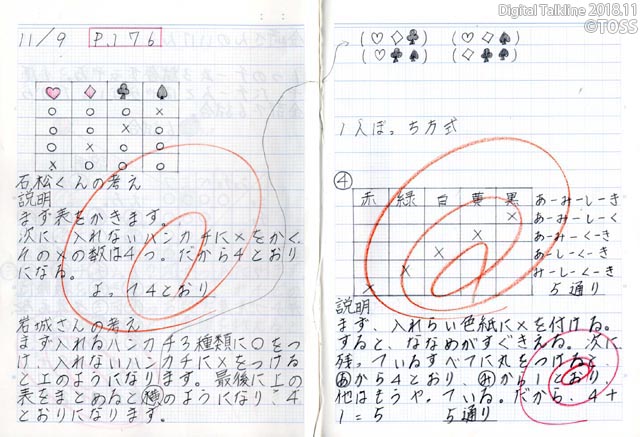 Digital Talkline 2018.11
©TOSS
11/9 P.176
♡ ◇ ♣ ♠
○ ○ ○ ×
○ ○ × ○
○ × ○ ○
× ○ ○ ○
石松くんの考え
説明
まず表をかきます。
次に、入れないハンカチに×をかく。
れの×の数は4つ。だから4とおり
になる。
よって4とおり
岩城さんの考え
まず入れるハンカチ3種類に○をつ
け、入れないハンカチに×をつける
と上のようになります。最後に上の
表をまとめると のようになり、4
とおりになります。
(♡◇♣) (♡◇♠)
(♡♣♠) (◇♣♠)
1人ぼっち方式
④
赤 緑 白 黄 黒
× あーみーしーき
× あーみーしーく
× あーみーくーき
× あーしーくーき
× みーしーくーき
5通り
説明
まず、入れらい色紙に×を付ける。
すると、ななめがすぐきえる。次に
残っているすべてに丸をつけると、
あから4とおり、みから1とおり、
他はもうやっている。だから、4+
1=5 5通り